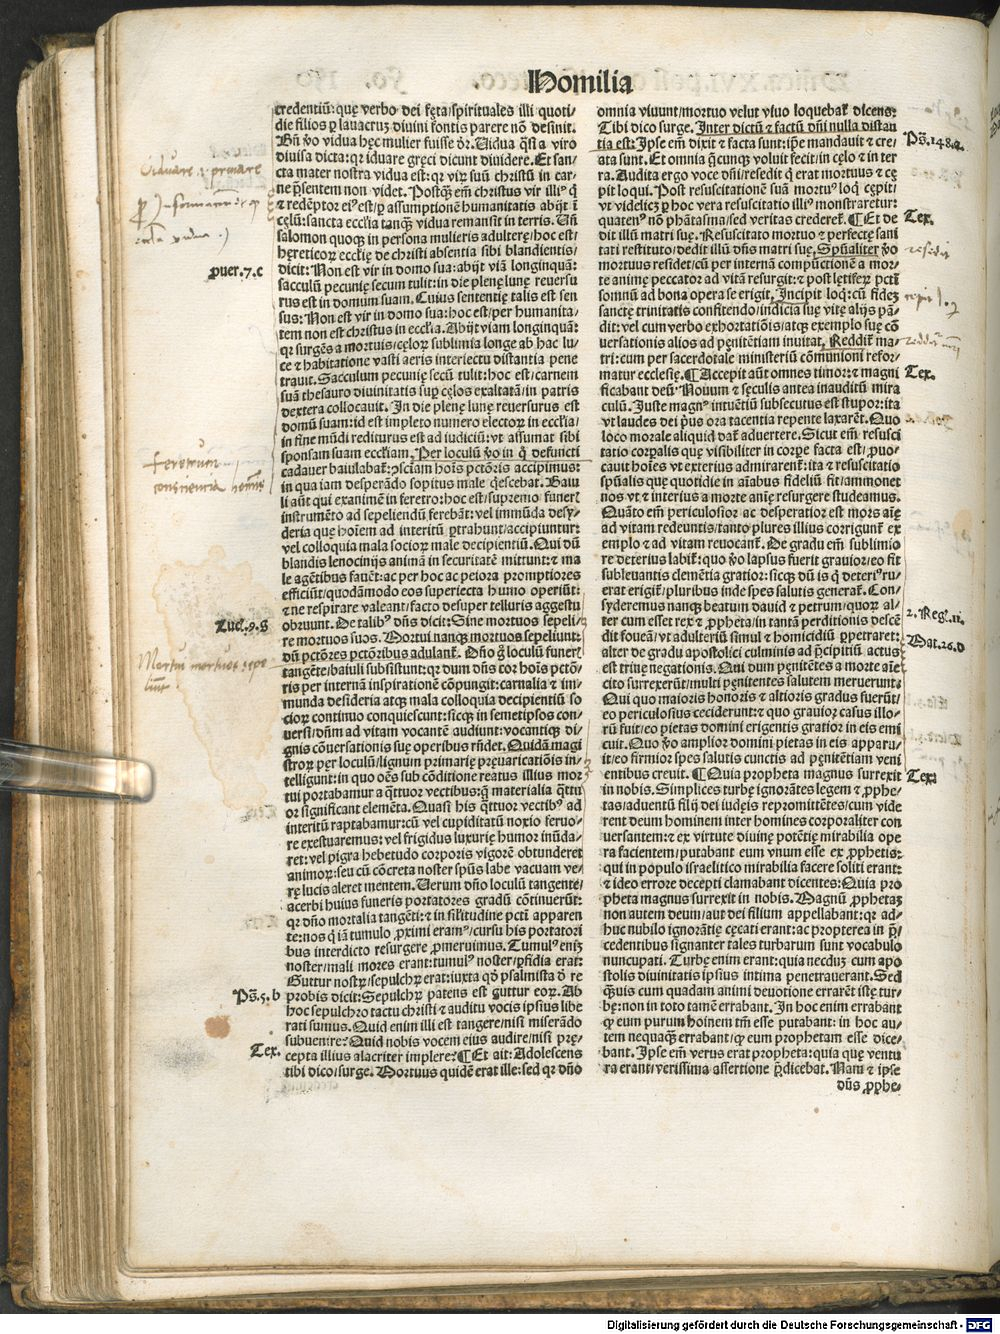 Homilia
credentiū: quę verbo dei fęta/spirituales illi quoti-
die filios ꝑ lauacruȝ diuini fontis parere nō desinit.
Bñ ꝟo vidua hęc mulier fuisse dr̄. Uidua qͥsi a viro
diuisa dicta: qꝛ iduare gręci dicunt diuidere. Et san-
cta mater nostra vidua est: qꝛ viꝝ suū christū in car-
ne p̄sentem non videt. Postqͣ em̄ christus vir illiꝰ qͥ
& redēptor eiꝰ est/ꝑ assumptionē humanitatis abijt ī
cęlū: sancta eccl'ia tanqͣ vidua remansit in terris. Uñ
salomon quoqȝ in persona mulieris adulterę/hoc est/
hęreticoꝝ eccl'ię de christi absentia sibi blandientis/
dicit: Non est vir in domo sua: abijt viā longinquā:
sacculū pecunię secum tulit: in die plenę lunę reuersu
rus est in domum suam. Cuius sententię talis est sen-
sus: Non est vir in domo sua: hoc est/per humanita-
tem non est christus in eccl'ia. Abijt viam longinquā:
qꝛ surgēs a mortuis/cęloꝝ sublimia longe ab hac lu-
ce & habitatione vasti aeris interiectu distantia pene
trauit. Sacculum pecunię secū tulit: hoc est/carnem
suā thesauro diuinitatis suꝑ cęlos exaltatā/in patris
dextera collocauit. In die plenę lunę reuersurus est
domū suam: id est impleto numero electoꝝ in eccl'ia/
in fine mūdi rediturus est ad iudiciū: vt assumat sibi
sponsam suam eccl'iam. Per loculū ꝟo in qͦ defuncti
cadauer baiulabat͛: ꝯsciam hoīs pctōris accipimus:
in qua iam desperādo sopitus male qͥescebat. Baiu
li aūt qui exanimē in feretro: hoc est/supremo funeri
instrumēto ad sepeliendū ferebāt: vel immūda desy-
deria que hoīem ad interitū ꝓtrahunt/accipiuntur:
vel colloquia mala socioꝝ male decipientiū. Qui dū
blandis lenocinijs animā in securitatē mittunt: & ma
le agētibus fauēt: ac per hoc ac peiora promptiores
efficiūt/quodāmodo eos superiecta humo operiūt:
& ne respirare valeant/facto desuper telluris aggestu
obruunt. De talibꝰ dñs dicit: Sine mortuos sepeli-
re mortuos suos. Mortui nanqȝ mortuos sepeliunt:
dū pctōres pctōribus adulant͛. Dño gͦ loculū funeri
tangēte/baiuli subsistunt: qꝛ dum dñs cor hoīs pctō-
ris per internā inspirationē cōpungit: carnalia & im-
munda desideria atqȝ mala colloquia decipientiū so
cioꝝ continuo conquiescunt: sicqȝ in semetipsos con-
uersi/dñm ad vitam vocantē audiunt: vocantiqȝ di-
gnis cōuersationis suę operibus rn̄det. Quidā magi
stroꝝ per loculū/lignum primarię preuaricatiōis in-
telligunt: in quo oēs sub cōditione reatus illius mor
tui portabamur a qͣttuor vectibus: qͣ materialia qͣttu
or significant elemēta. Quasi his qͣttuor vectibꝰ ad
interitū raptabamur: cū vel cupiditatū noxio feruo-
re exestuaremus: vel frigidus luxurię humor inūda-
ret: vel pigra hebetudo corporis vigorē obtunderet
animoꝝ: seu cū cōcreta noster spūs labe vacuam ve-
rę lucis aleret mentem. Uerum dño loculū tangente/
acerbi huius funeris portatores gradū cōtinuerūt:
qꝛ dño mortalia tangēti: & in sil'itudine pcti apparen
te: nos qͥ iā tumulo ꝓximi eramꝰ/cursu his portatori
bus interdicto resurgere ꝓmeruimus. Tumulꝰ enīȝ
noster/mali mores erant: tumulꝰ noster/ꝑfidia erat:
Guttur nostꝝ/sepulchꝝ erat: iuxta qđ psalmista ō re
probis dicit: Sepulchꝝ patens est guttur eoꝝ. Ab
hoc sepulchro tactu christi & auditu vocis ipsius libe
rati sumus. Quid enim illi est tangere/nisi miserādo
subuenire? Quid nobis vocem eius audire/nisi prę-
cepta illius alacriter implere? ¶ Et ait: Adolescens
tibi dico/surge. Mortuus quidē erat ille: sed qꝛ dño
omnia viuunt/mortuo velut viuo loquebat͛ dicens:
Tibi dico surge. Inter dictū & factū dñi nulla distan
tia est: Ipse em̄ dixit & facta sunt: ip̄e mandauit & cre-
ata sunt. Et omnia qͣcunqȝ voluit fecit/in cęlo & in ter
ra. Audita ergo voce dñi/resedit qͥ erat mortuus & cę
pit loqui. Post resuscitationē suā mortuꝰ loqͥ cępit/
vt videlicȝ ꝑ hoc vera resuscitatio illiꝰ monstraretur:
quatenꝰ nō phātasma/sed veritas crederet͛. ¶ Et de
dit illū matri suę. Resuscitato mortuo & perfectę sani
tati restituto/dedit illū dñs matri suę. Spūaliter ꝟo
mortuus residet/cū per internā compūctionē a mor-
te animę peccator ad vitā resurgit: & post lętiferꝝ pcti
somnū ad bona opera se erigit. Incipit loqͥ: cū fideȝ
sanctę trinitatis confitendo/indicia suę vitę alijs pā-
dit: vel cum verbo exhortatiōis/atqȝ exemplo suę cō
uersationis alios ad pęnitētiam inuitat. Reddit͛ ma-
tri: cum per sacerdotale ministeriū cōmunioni refor-
matur ecclesię. ¶ Accepit aūt omnes timor: & magni
ficabant deū. Nouum & sęculis antea inauditū mira
culū. Iuste magnꝰ intuētiū subsecutus est stupor: ita
vt laudes dei pͥus ora tacentia repente laxarēt. Quo
loco morale aliquid dat͛ aduertere. Sicut em̄ resusci
tatio corpalis que visibiliter in corpe facta est/ꝓuo-
cauit hoīes vt exterius admirarent͛: ita & resuscitatio
spūalis quę quotidie in aīabus fidelium fit/ammonet
nos vt & interius a morte anię resurgere studeamus.
Quāto em̄ periculosior ac desperatior est mors aīę
ad vitam redeuntis/tanto plures illius corrigunt͛ ex
emplo & ad vitam reuocant͛. De gradu em̄ sublimio
re deterius labit͛: quo ꝟo lapsus fuerit grauior/eo fit
subleuantis clemētia gratior: sicqȝ dū is qͥ deteriꝰ ru-
erat erigit͛/pluribus inde spes salutis generat͛. Con-
syderemus nanqȝ beatum dauid & petrum/quoꝝ al-
ter cum esset rex & ꝓpheta/in tantā perditionis descē
dit foueā/vt adulteriū simul & homicidiū ꝑpetraret:
alter de gradu apostolici culminis ad p̄cipitiū actus
est trinę negationis. Qui dum pęnitētes a morte aīę
cito surrexerūt/multi pęnitentes salutem meruerunt.
Qui quo maioris honoris & altioris gradus fuerūt/
eo periculosius ceciderunt: & quo grauioꝝ casus illo-
rū fuit/eo pietas domini erigentis gratior in eis emi
cuit. Quo ꝟo amplior domini pietas in eis apparu-
it/eo firmior spes salutis cunctis ad pęnitētiam veni
entibus creuit. ¶ Quia propheta magnus surrexit
in nobis. Simplices turbę ignorātes legem & ꝓphe-
tas/aduentū filij dei iudęis repromittētes/cum vide
rent deum hominem inter homines corporaliter con
uersantem: & ex virtute diuinę potētię mirabilia ope
ra facientem/putabant eum vnum esse ex ꝓphetis:
qui in populo israelitico mirabilia facere soliti erant:
& ideo errore decepti clamabant dicentes: Quia pro
pheta magnus surrexit in nobis. Magnū ꝓphetaȝ
non autem deum/aut dei filium appellabant: qꝛ ad-
huc nubilo ignorātię cęcati erant: ac propterea in p̄-
cedentibus signanter tales turbarum sunt vocabulo
nuncupati. Turbę enim erant: quia necdūȝ cum apo
stolis diuinitatis ipsius intima penetrauerant. Sed
qͣuis cum quadam animi deuotione errarēt istę tur-
bę: non in toto tamē errabant. In hoc enim errabant
ꝙ eum purum hoinem tm̄ esse putabant: in hoc au-
tem nequaqͣ errabant/ꝙ eum prophetam esse dice-
bant. Ipse em̄ verus erat propheta: quia quę ventu
ra erant/verissima assertione p̄dicebat. Nam & ipse
dñs ꝓphe-
puer. 7. c
Luč. 9. g
Ps̄. 5. b
Tex.
Ps̄. 148. a.
Tex.
Tex.
2. Reg. 11.
Mat. 26. d
Tex.
Iduare
feretrum
consciencia hominis
Mortui mortuos sepe
liunt
Digitalisierung gefördert durch die Deutsche Forschungsgemeinschaft - DFG